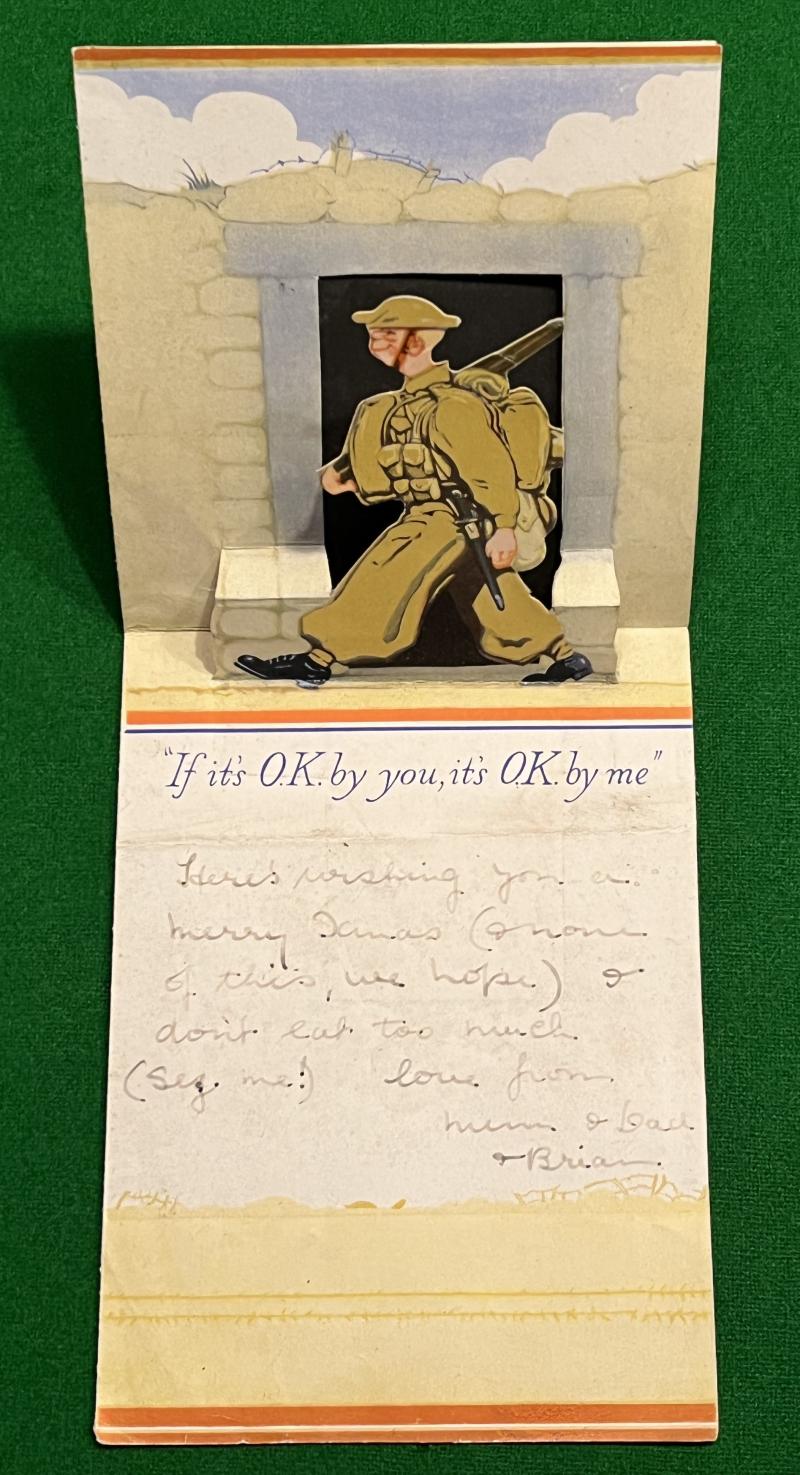 "If it's O.K. by you, it's O.K. by me"
Here's wishing you a
merry Xmas (& none
of this, we hope) &
don't eat too much
(sez me!) love from
Mum & Dad
& Brian.